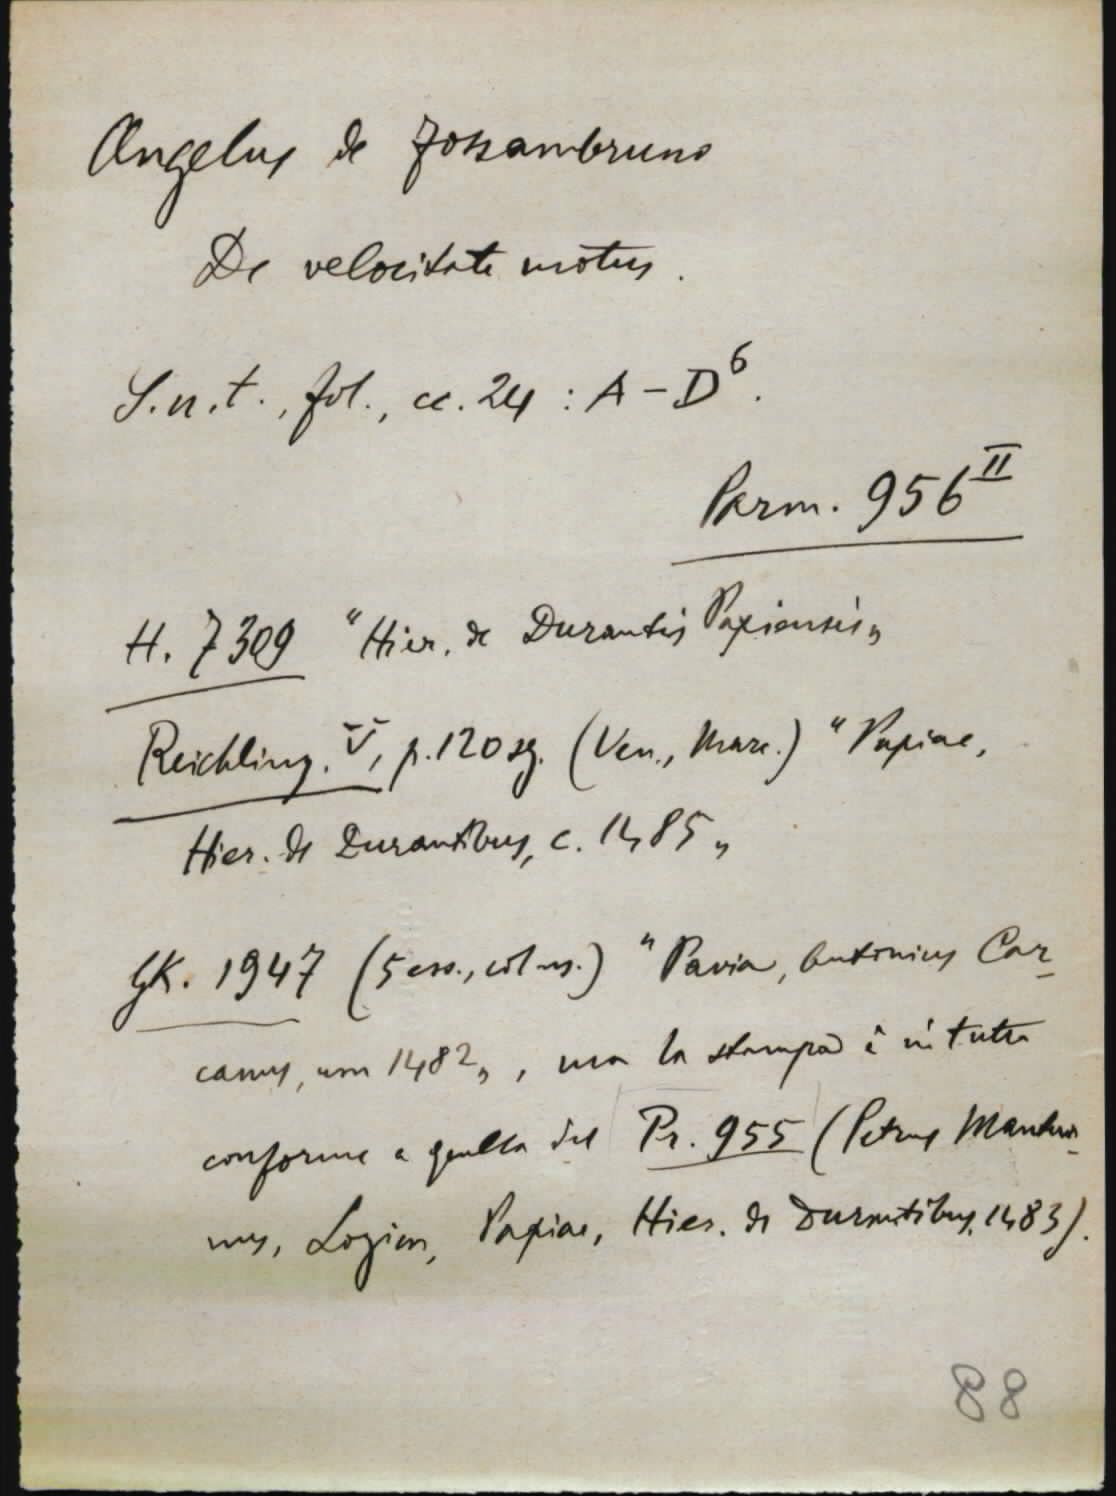 Angelus de Fossambruno
De velocitate motus.
S.n.t., fol., cc. 24 : A – D⁶.
Parm. 956ᴵᴵ
H. 7309 "Hier. de Durantis Papiensis„
Reichling. V, p. 120 sg. (Ven., Marc.) "Papiae,
Hier. de Durantibus, c. 1485„
GK. 1947 (5 ess., col ns.) "Pavia, Antonius Car-
canus, um 1482„, ma la stampa è in tutto
conforme a quella del Pr. 955 (Petrus Mantua-
nus, Logica, Papiae, Hier. de Durantibus, 1483).
88